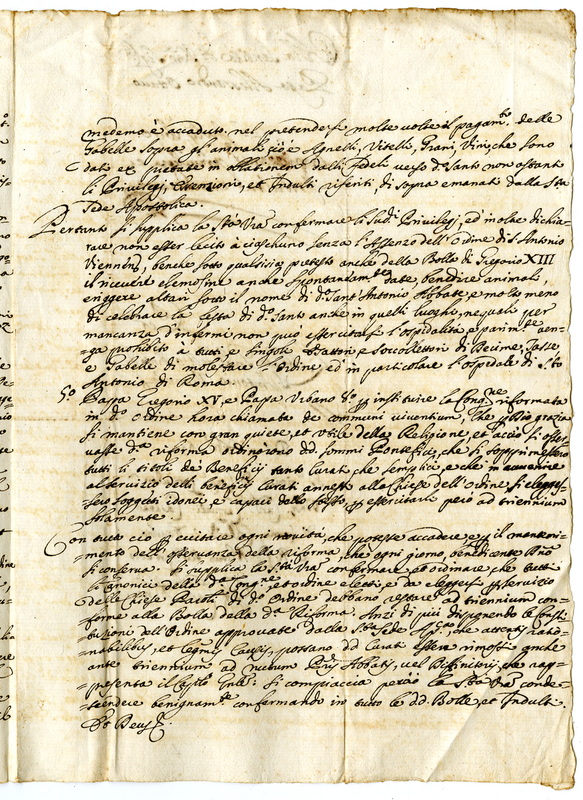 medemo è accaduto nel pretendersi molte volte il pagam.to delle
Gabelle sopra gli animali cioè Agnelli, Vitelli, Grani, Vini, che sono
dati et in oblationem dalli fedeli verso d.o Santo non ostant
li Privilegj, et Indulti riferiti di sopra emanati dalla S.ta
Sede Apostolica.
Pertanto si supplica la S.tà V.ra confermare li sud.i Privilegj, ed inoltre dichia=
rare non esser lecito à ciaschuno senza l'Assenzo dell'Ordine di S. Antonio
Viennen, benche sotto qualsisia pretesto anche della Bolla di Gregorio XIII
il ricever elemosine anche spontaneam.te date, benedire animali,
erigere altari sotto il nome di d.o Sant'Antonio Abbate, e molto meno
di celebrare la festa di d.o Santo anche in quelli luoghi, ne quali per
mancanza d'infermi non può essercitarsi l'ospidalità, e parim.te ven=
ga prohibito à tutti e singoli Esattori, e Soccollettori di Decime, Tasse
e Gabelle di molestare l'Ordine ed in particolare l'ospidale di S.to
Antonio di Roma.
5.o Papa Gregorio XV, e Papa Urbano 8.o instituire la Cong.ne riformata
in d.o Ordine hora chiamata de communi viventium, che Dio grazia
si mantiene con gran quiete, et utile della Religione, et acciò si osser
vasse d.a riforma ordinorono dd. sommi Pontefici, che si sopprimessero
tutti li titoli de Beneficij tanto Curati che semplici, e che in avvenire
al servizio delli beneficij Curati annessi alle Chiese dell'Ordine si eleges=
sero soggetti idonei e capaci dello stesso, essercitarli però ad triennium
solamente.
Con tutto ciò evitare ogni novità, che potesse accadere e il manteni=
mento dell'osservanza della riforma, che ogni giorno, benedicente D.no
si conserva. Si supplica la S.tà V.ra confermare et ordinare, che tutti
li Canonici della d.a Cong.ne, et ordine eletti, e da eleggersi servizio
delle Chiese di d.o Ordine debbano restare ad triennium con=
forme alla Bolla della d.a Riforma. Anzi di più disponendo le Consti
tutioni dell'Ordine approvate dalla S.ta Sede Ap.ca, che attentis ratio=
nabilibus, et legitimis Causis, possano dd. Curati essere rimossi anche
ante triennium ad nutum Abbatis, vel Diffinitorij, che rap=
presenta il Capitolo Gn'le. Si compiaccia perciò la S.tà V.ra conde=
scendere benignam.te confermando in tutto le dd. Bolle, et Indulti.
Deus